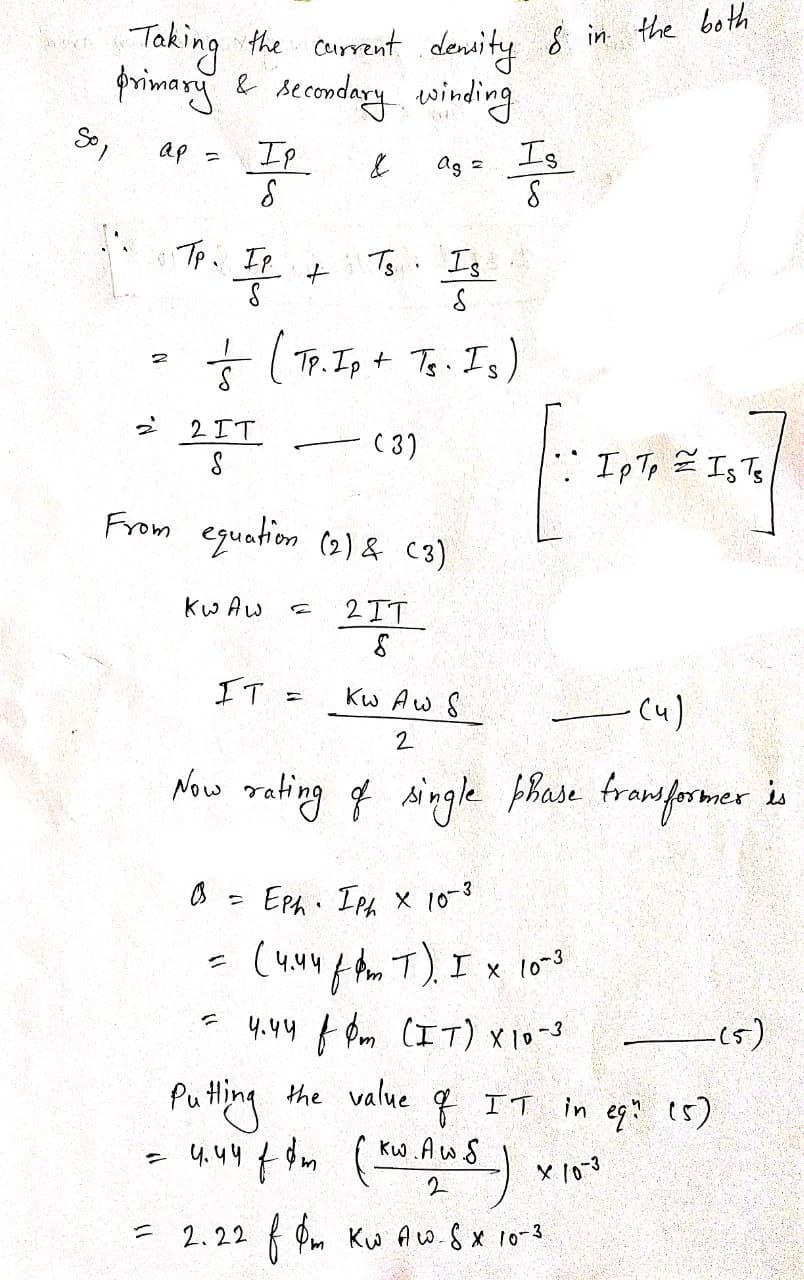 Taking the current density δ in the both
primary & secondary winding
So, ap = Ip/δ & as = Is/δ
∴ Tp. Ip/δ + Ts . Is/δ
= 1/δ (Tp.Ip + Ts.Is)
= 2IT/δ — (3) [∵ IpTp ≅ IsTs]
From equation (2) & (3)
Kw Aw = 2IT/δ
IT = Kw Aw δ/2 — (4)
Now rating of single phase transformer is
Q = Eph . Iph x 10⁻³
= (4.44 f ϕm T). I x 10⁻³
= 4.44 f ϕm (IT) x 10⁻³ — (5)
Putting the value of IT in eqⁿ (5)
= 4.44 f ϕm (Kw.Aw.δ/2) x 10⁻³
= 2.22 f ϕm Kw Aw.δ x 10⁻³